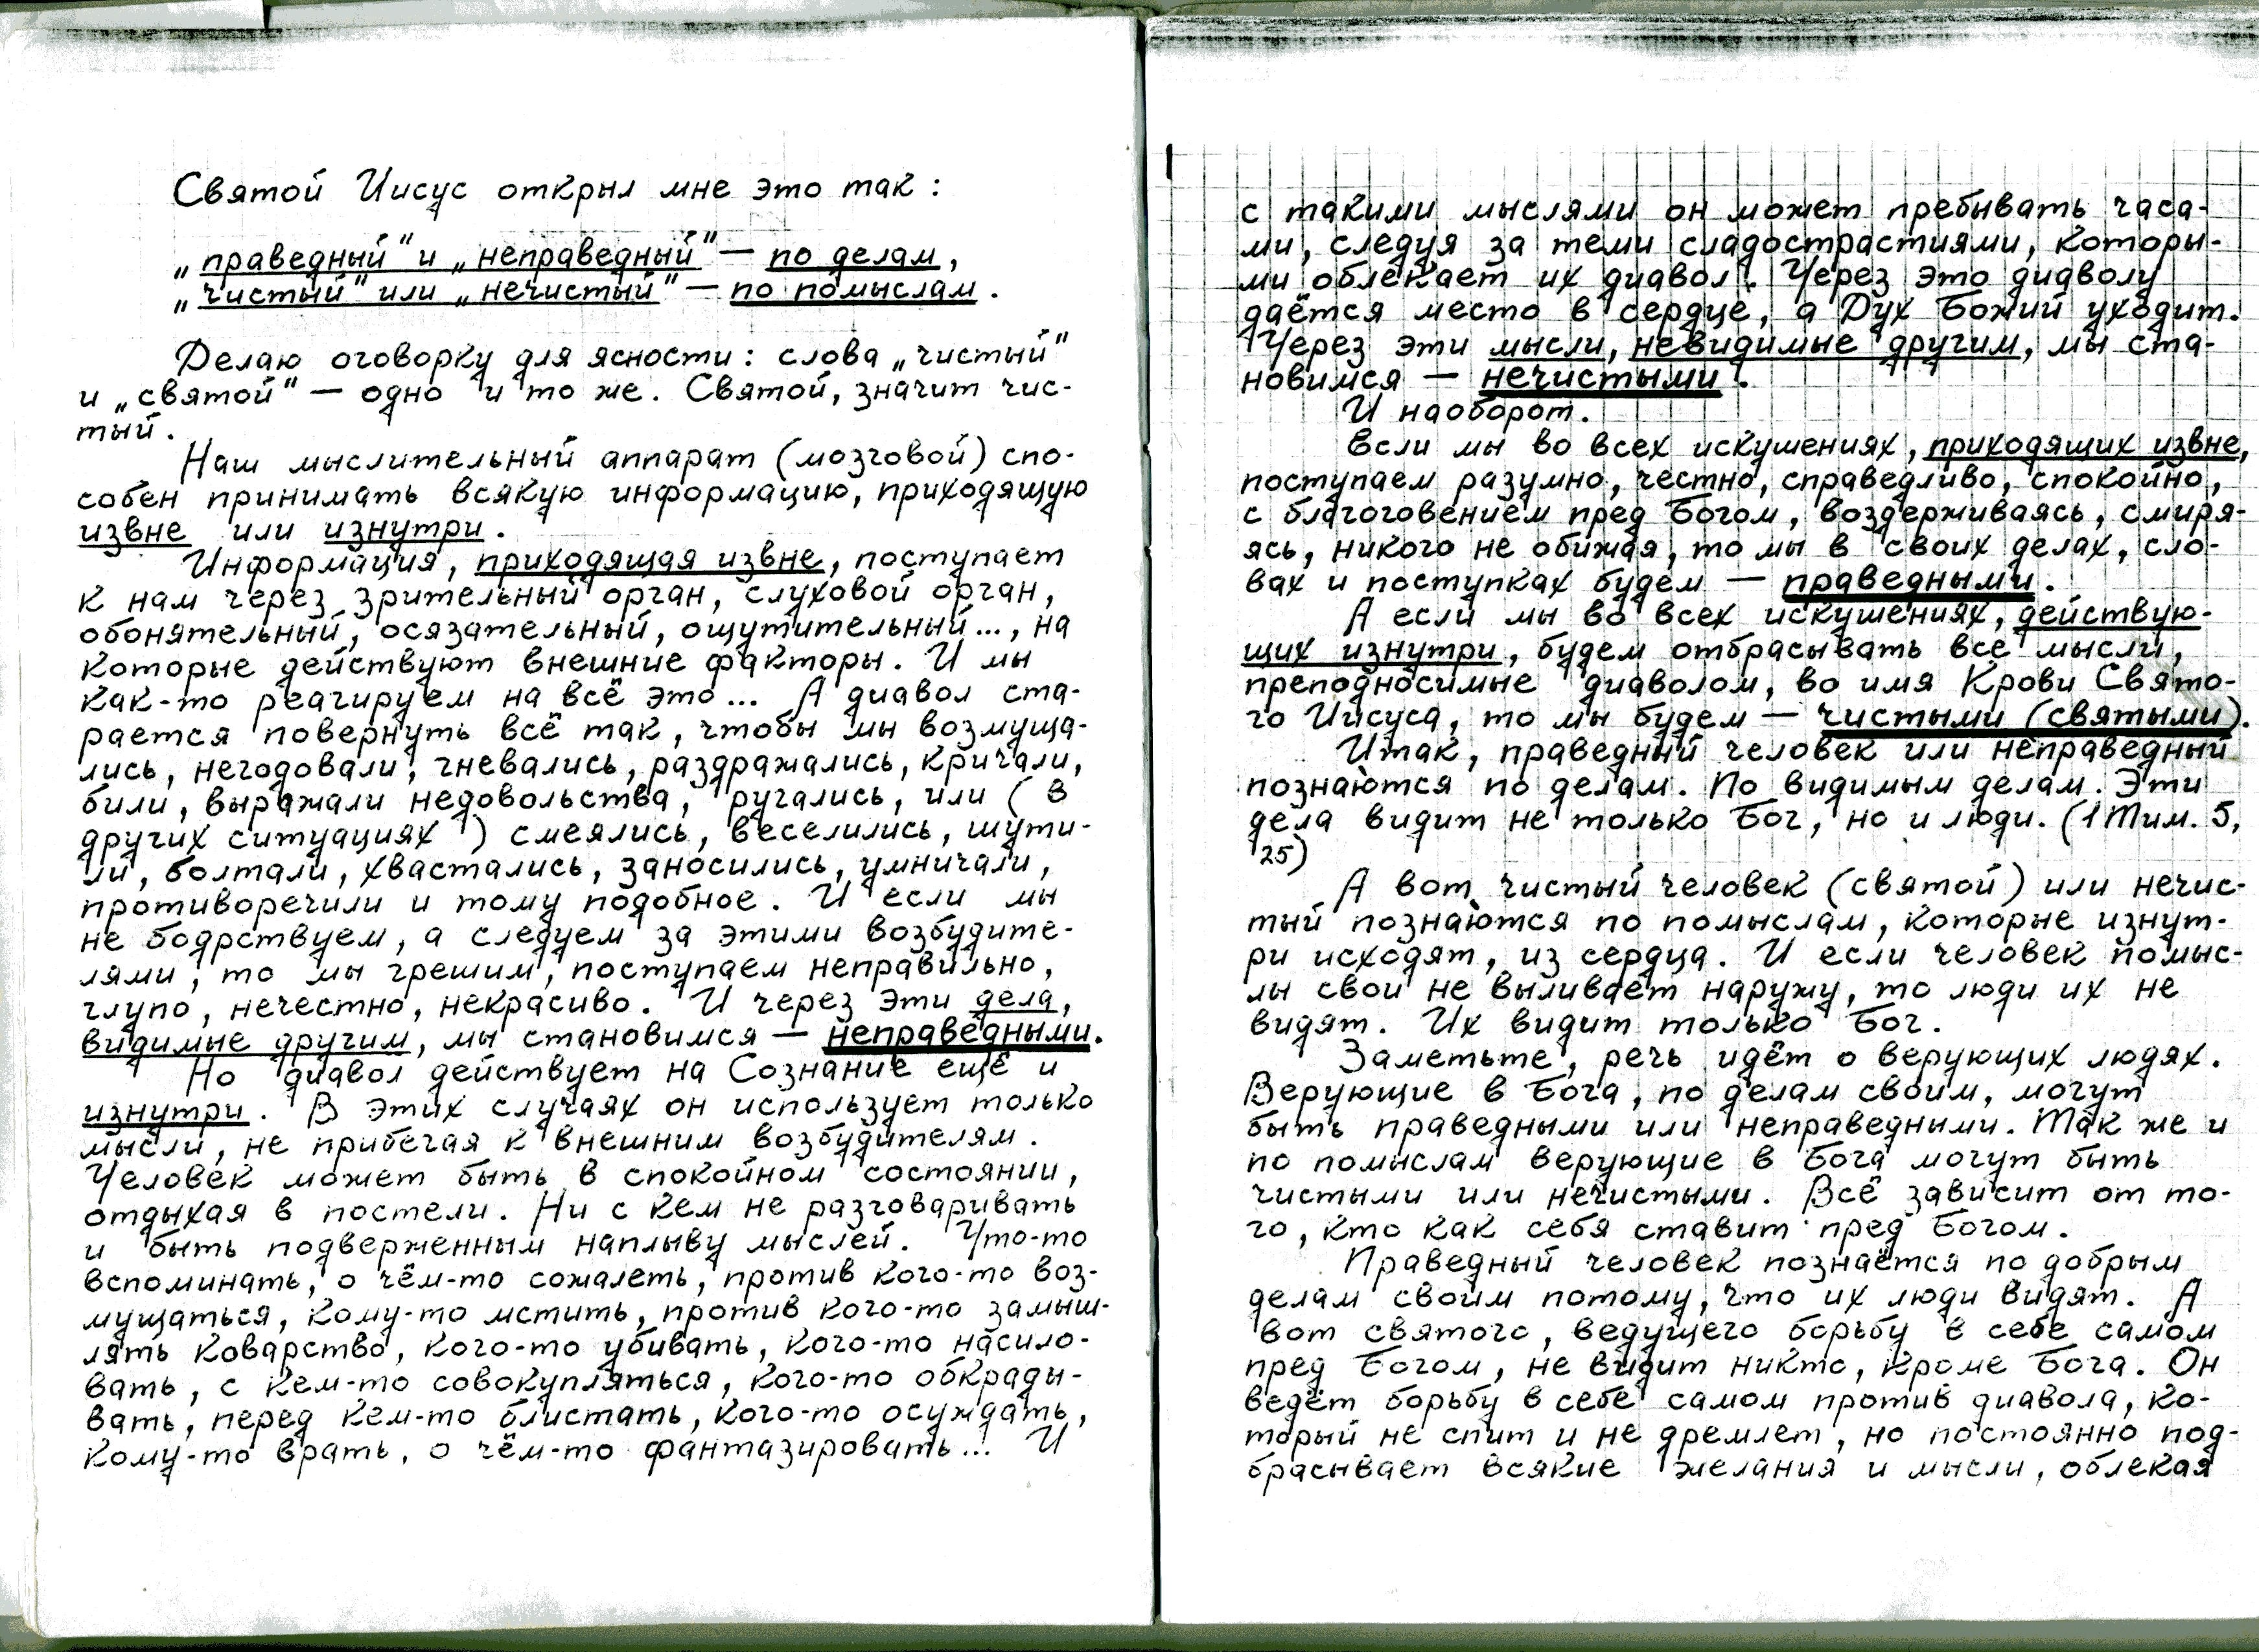 Святой Иисус открыл мне это так:
„праведный" и „неправедный" — по делам,
„чистый" или „нечистый" — по помыслам.
Делаю оговорку для ясности: слова „чистый"
и „святой" — одно и то же. Святой, значит чис-
тый.
Наш мыслительный аппарат (мозговой) спо-
собен принимать всякую информацию, приходящую
извне или изнутри.
Информация, приходящая извне, поступает
к нам через зрительный орган, слуховой орган,
обонятельный, осязательный, ощутительный..., на
которые действуют внешние факторы. И мы
как-то реагируем на всё это... А диавол ста-
рается повернуть всё так, чтобы мы возмуща-
лись, негодовали, гневались, раздражались, кричали,
били, выражали недовольства, ругались, или ( в
других ситуациях ) смеялись, веселились, шути-
ли, болтали, хвастались, заносились, умничали,
противоречили и тому подобное. И если мы
не бодрствуем, а следуем за этими возбудите-
лями, то мы грешим, поступаем неправильно,
глупо, нечестно, некрасиво. И через эти дела,
видимые другим, мы становимся — неправедными.
Но диавол действует на Сознание ещё и
изнутри. В этих случаях он использует только
мысли, не прибегая к внешним возбудителям.
Человек может быть в спокойном состоянии,
отдыхая в постели. Ни с кем не разговаривать
и быть подверженным наплыву мыслей. Что-то
вспоминать, о чём-то сожалеть, против кого-то воз-
мущаться, кому-то мстить, против кого-то замыш-
лять коварство, кого-то убивать, кого-то насило-
вать, с кем-то совокупляться, кого-то обкрады-
вать, перед кем-то блистать, кого-то осуждать,
кому-то врать, о чём-то фантазировать... И
с такими мыслями он может пребывать часа-
ми, следуя за теми сладострастиями, которы-
ми облекает их диавол. Через это диаволу
даётся место в сердце, а Дух Божий уходит.
Через эти мысли, невидимые другим, мы ста-
новимся — нечистыми.
И наоборот.
Если мы во всех искушениях, приходящих извне,
поступаем разумно, честно, справедливо, спокойно,
с благоговением пред Богом, воздерживаясь, смиря-
ясь, никого не обижая, то мы в своих делах, сло-
вах и поступках будем — праведными.
А если мы во всех искушениях, действую-
щих изнутри, будем отбрасывать все мысли,
преподносимые диаволом, во имя Крови Свято-
го Иисуса, то мы будем — чистыми (святыми).
Итак, праведный человек или неправедный
познаются по делам. По видимым делам. Эти
дела видит не только Бог, но и люди. (1 Тим. 5,
25)
А вот чистый человек (святой) или нечис-
тый познаются по помыслам, которые изнут-
ри исходят, из сердца. И если человек помыс-
лы свои не выливает наружу, то люди их не
видят. Их видит только Бог.
Заметьте, речь идёт о верующих людях.
Верующие в Бога, по делам своим, могут
быть праведными или неправедными. Так же и
по помыслам верующие в Бога могут быть
чистыми или нечистыми. Всё зависит от то-
го, кто как себя ставит пред Богом.
Праведный человек познаётся по добрым
делам своим потому, что их люди видят. А
вот святого, ведущего борьбу в себе самом
пред Богом, не видит никто, кроме Бога. Он
ведёт борьбу в себе самом против диавола, ко-
торый не спит и не дремлет, но постоянно под-
брасывает всякие желания и мысли, облекая